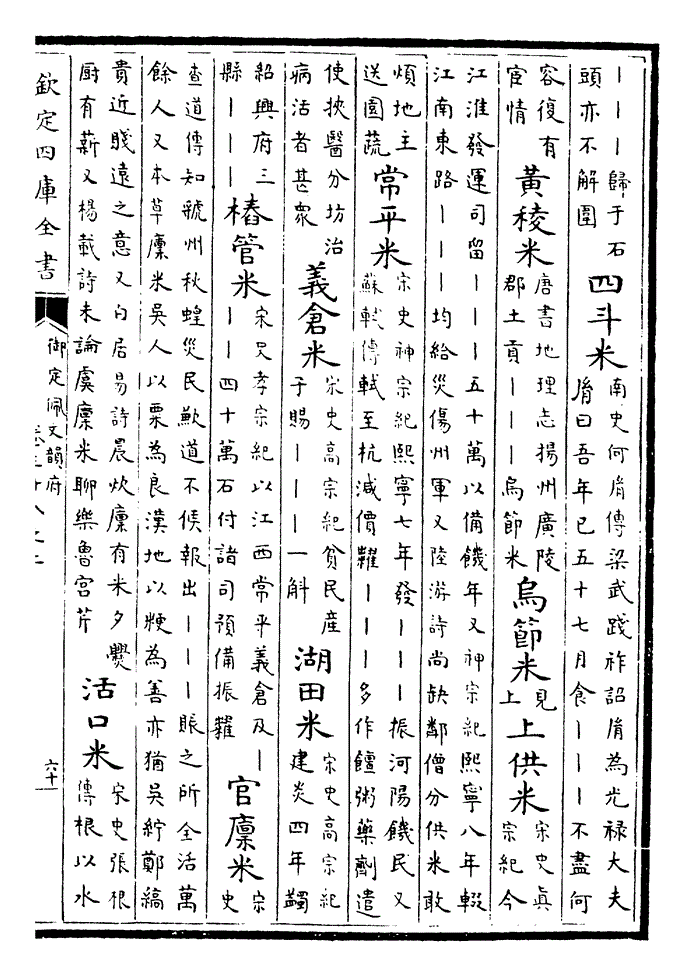 ｜｜｜歸于石
頭亦不解圍
四斗米
南史何胤傳梁武踐祚詔胤為光祿大夫
胤曰吾年已五十七月食｜｜｜不盡何
容復有
宦情
黃稜米
唐書地理志揚州廣陵
郡土貢｜｜｜烏節米
烏節米
見
上
上供米
宋史真
宗紀今
江淮發運司留｜｜｜五十萬以備饑年又神宗紀熙寧八年輟
江南東路｜｜｜均給災傷州軍又陸游詩尚缺鄰僧分供米敢
煩地主
送園蔬
常平米
宋史神宗紀熙寧七年發｜｜｜振河陽饑民又
蘇軾傳軾至杭減價糶｜｜｜多作饘粥藥劑遣
使挾醫分坊治
病活者甚衆
義倉米
宋史高宗紀貧民産
子賜｜｜｜一斛
湖田米
宋史高宗紀
建炎四年蠲
紹興府三
縣｜｜｜
樁管米
宋史孝宗紀以江西常平義倉及｜
｜｜四十萬石付諸司預備振糶
官廩米
宋
史
查道傳知虢州秋蝗災民歉道不候報出｜｜｜賑之所全活萬
餘人又本草廩米吳人以粟為良漢地以粳為善亦猶吳紵鄭縞
貴近賤遠之意又白居易詩晨炊廩有米夕爨
厨有薪又楊載詩未論虞廩米聊樂魯宮芹
活口米
宋史張根
傳根以水
欽定四庫全書
御定佩文韻府
六十